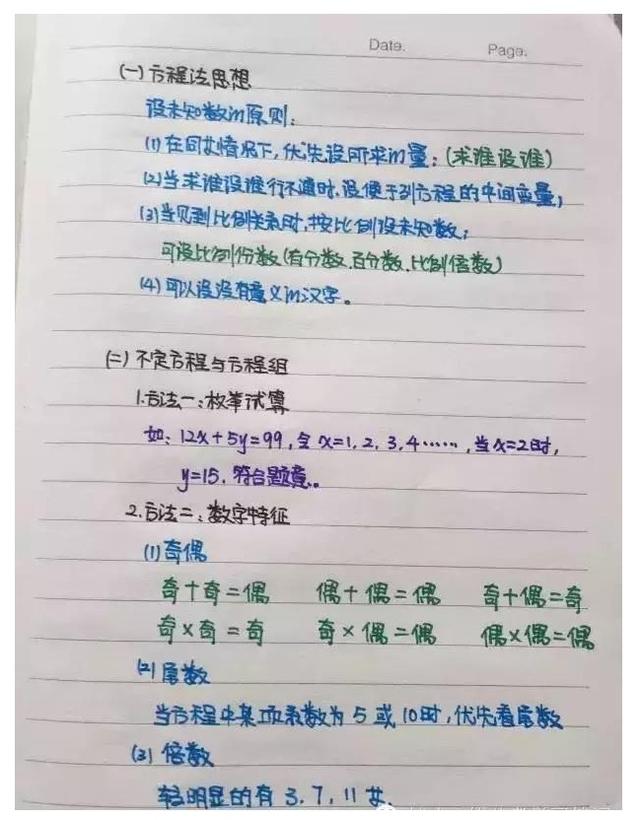 Date.
Page.
(一) 方程法思想
设未知数的原则:
(1) 在同等情况下, 优先设所求的量; (求谁设谁)
(2) 当求谁设谁行不通时, 设便于列方程的中间变量;
(3) 当见到比例关系时, 按比例设未知数;
可设比例份数 (有分数、百分数、比例倍数)
(4) 可以设没有意义的汉字。
(二) 不定方程与方程组
1. 方法一: 枚举试算
如: 12x+5y=99, 令 x=1, 2, 3, 4……, 当x=2时,
y=15, 符合题意。
2. 方法二: 数字特征
(1) 奇偶
奇+奇=偶 偶+偶=偶 奇+偶=奇
奇×奇=奇 奇×偶=偶 偶×偶=偶
(2) 尾数
当方程中某项系数为 5 或 10时, 优先看尾数
(3) 倍数
较明显的有 3, 7, 11 等